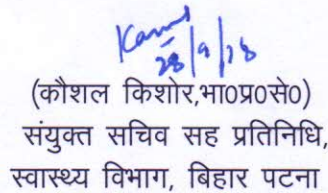 28/9/18
(कौशल किशोर,भा0प्र0से0)
संयुक्त सचिव सह प्रतिनिधि,
स्वास्थ्य विभाग, बिहार पटना